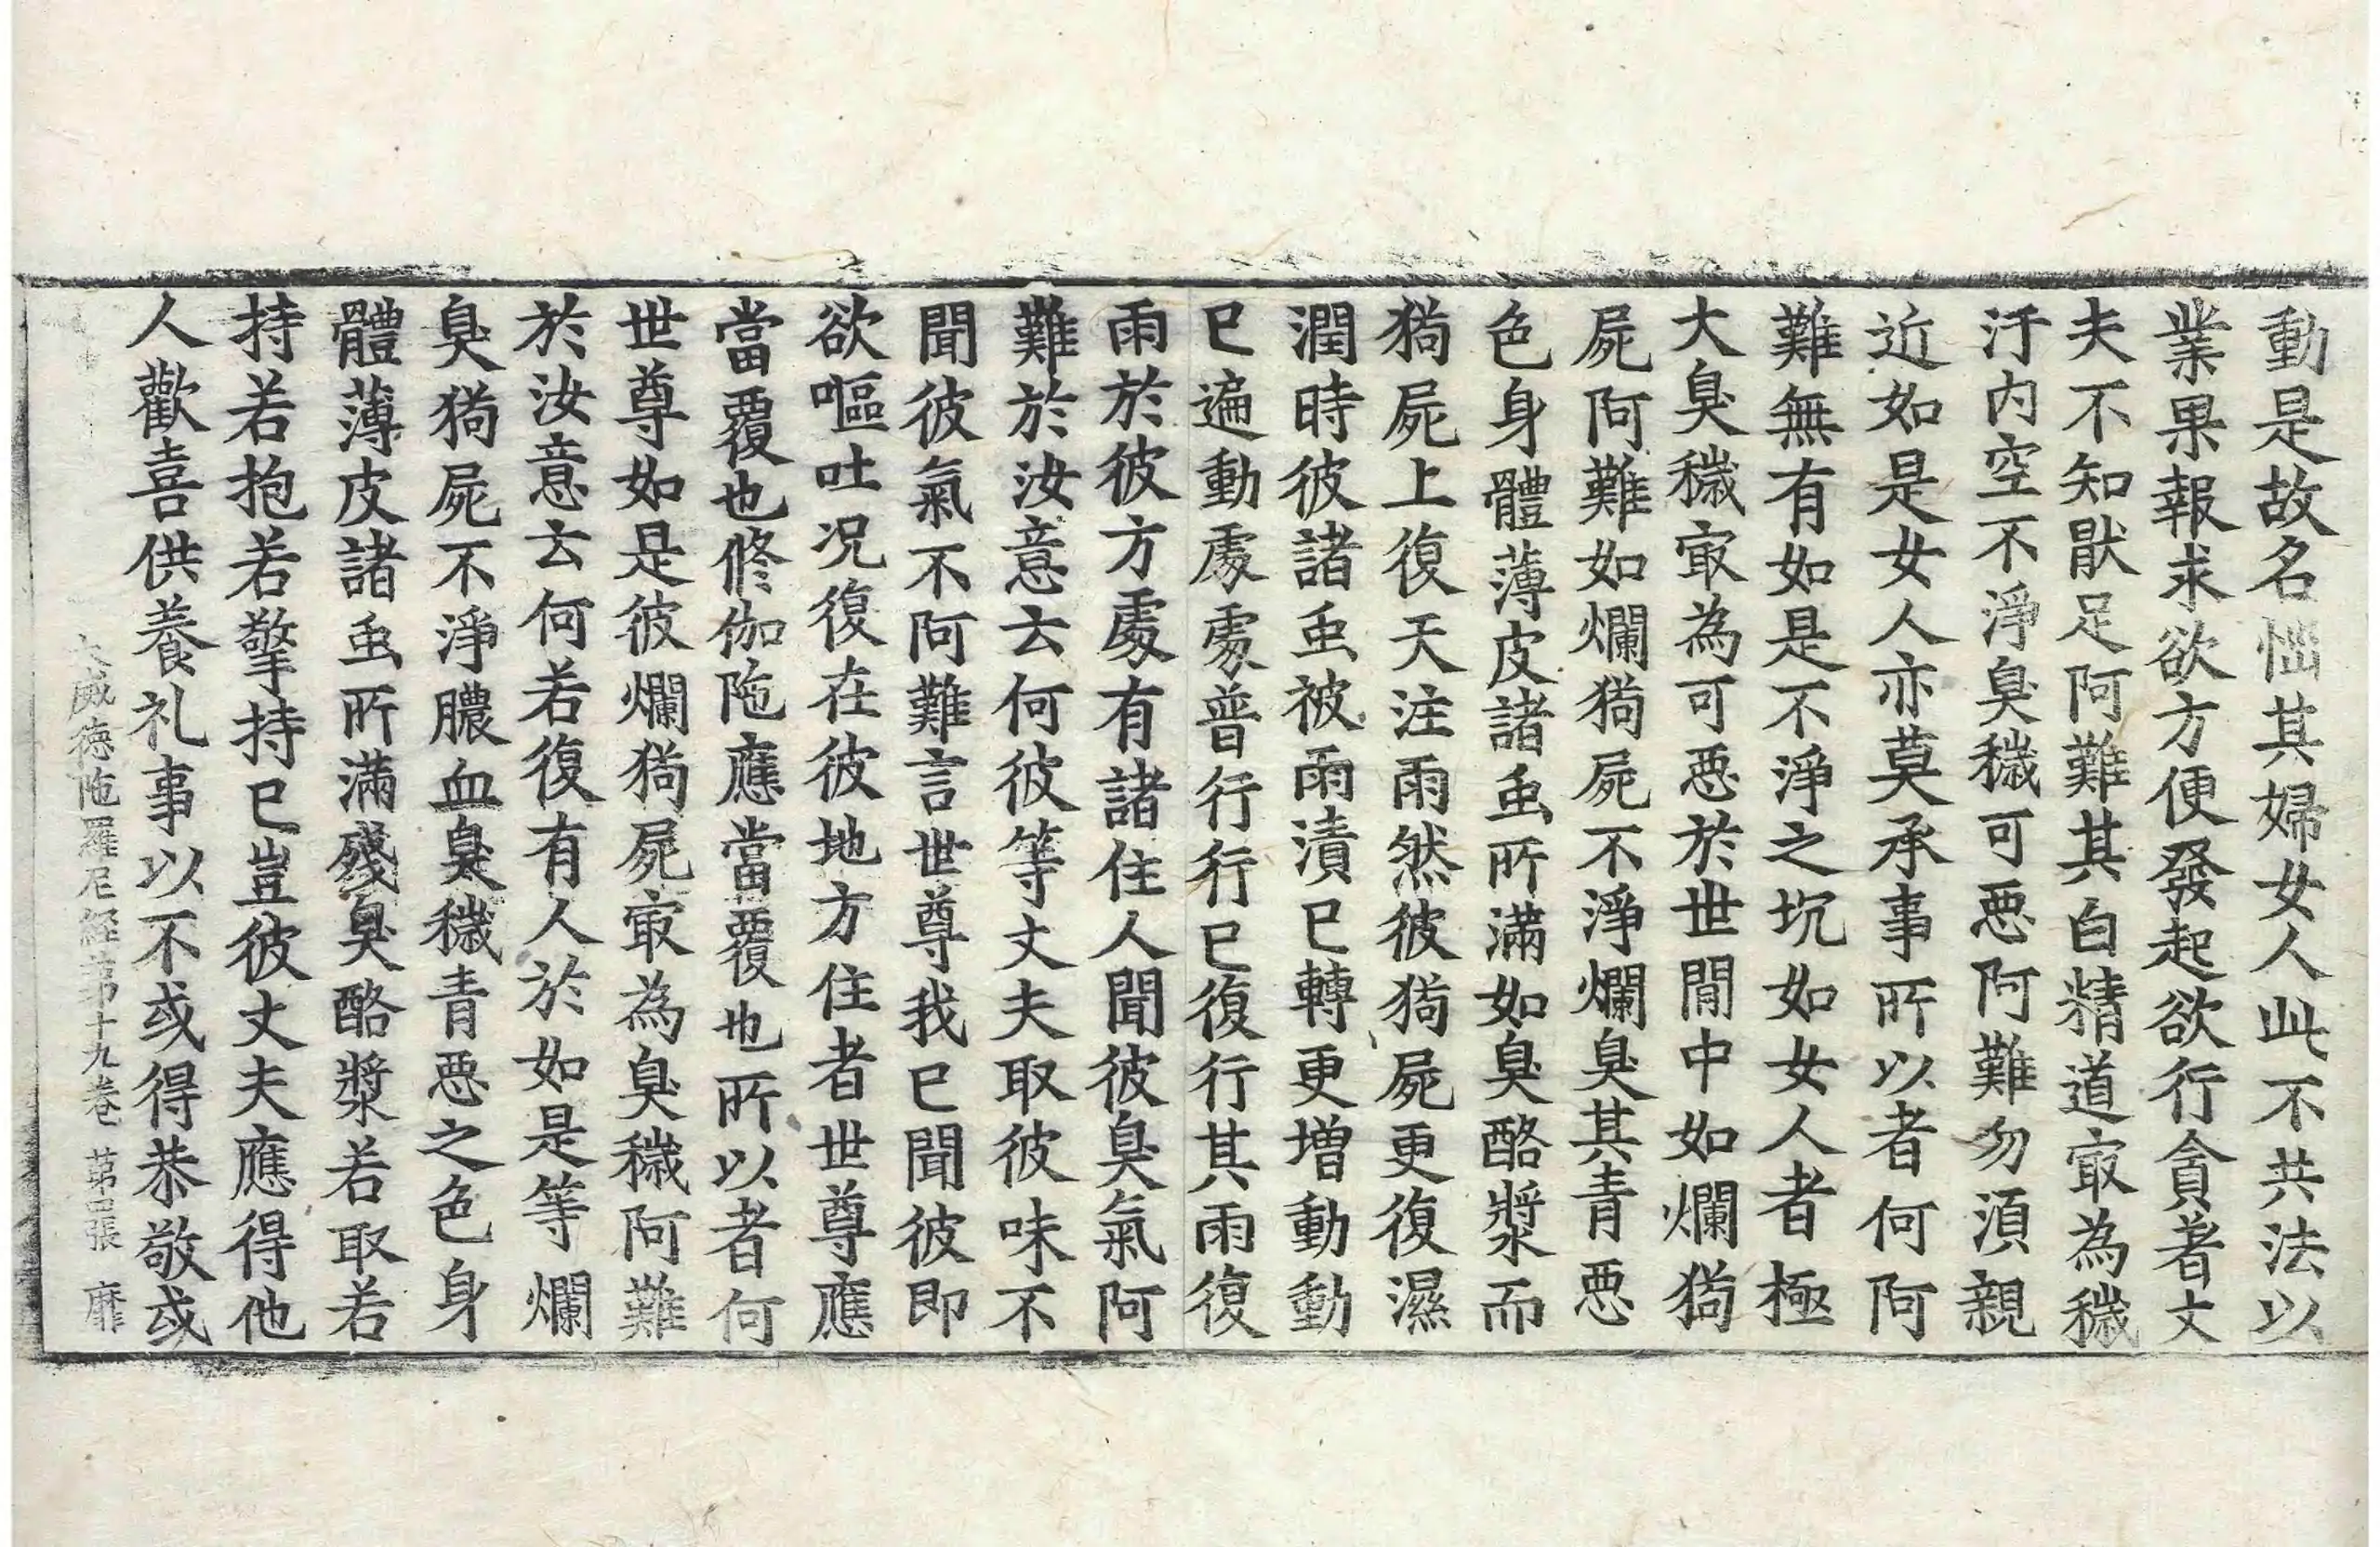 動是故名惱其婦女人此不共法以
業果報求欲方便發起欲行貪著丈
夫不知猒足阿難其白精道冣為穢
汙内空不淨臭穢可惡阿難勿須親
近如是女人亦莫承事所以者何阿
難無有如是不淨之坑如女人者極
大臭穢冣為可惡於世閒中如爛㺃
屍阿難如爛㺃屍不淨爛臭其青惡
色身體薄皮諸虫所滿如臭酪漿而
㺃屍上復天注雨然彼㺃屍更復濕
潤時彼諸虫被雨漬已轉更增動動
已遍動處處普行行已復行其雨復
雨於彼方處有諸住人聞彼臭氣阿
難於汝意云何彼等丈夫取彼味不
聞彼氣不阿難言世尊我已聞彼即
欲嘔吐况復在彼地方住者世尊應
當覆也修伽陁應當覆也所以者何
世尊如是彼爛㺃屍冣為臭穢阿難
於汝意云何若復有人於如是等爛
臭㺃屍不淨膿血臭穢青惡之色身
體薄皮諸虫所滿殘臭酪漿若取若
持若抱若擎持已豈彼丈夫應得他
人歡喜供養礼事以不或得恭敬或
大威德陁羅尼経第十九卷 第四張 靡